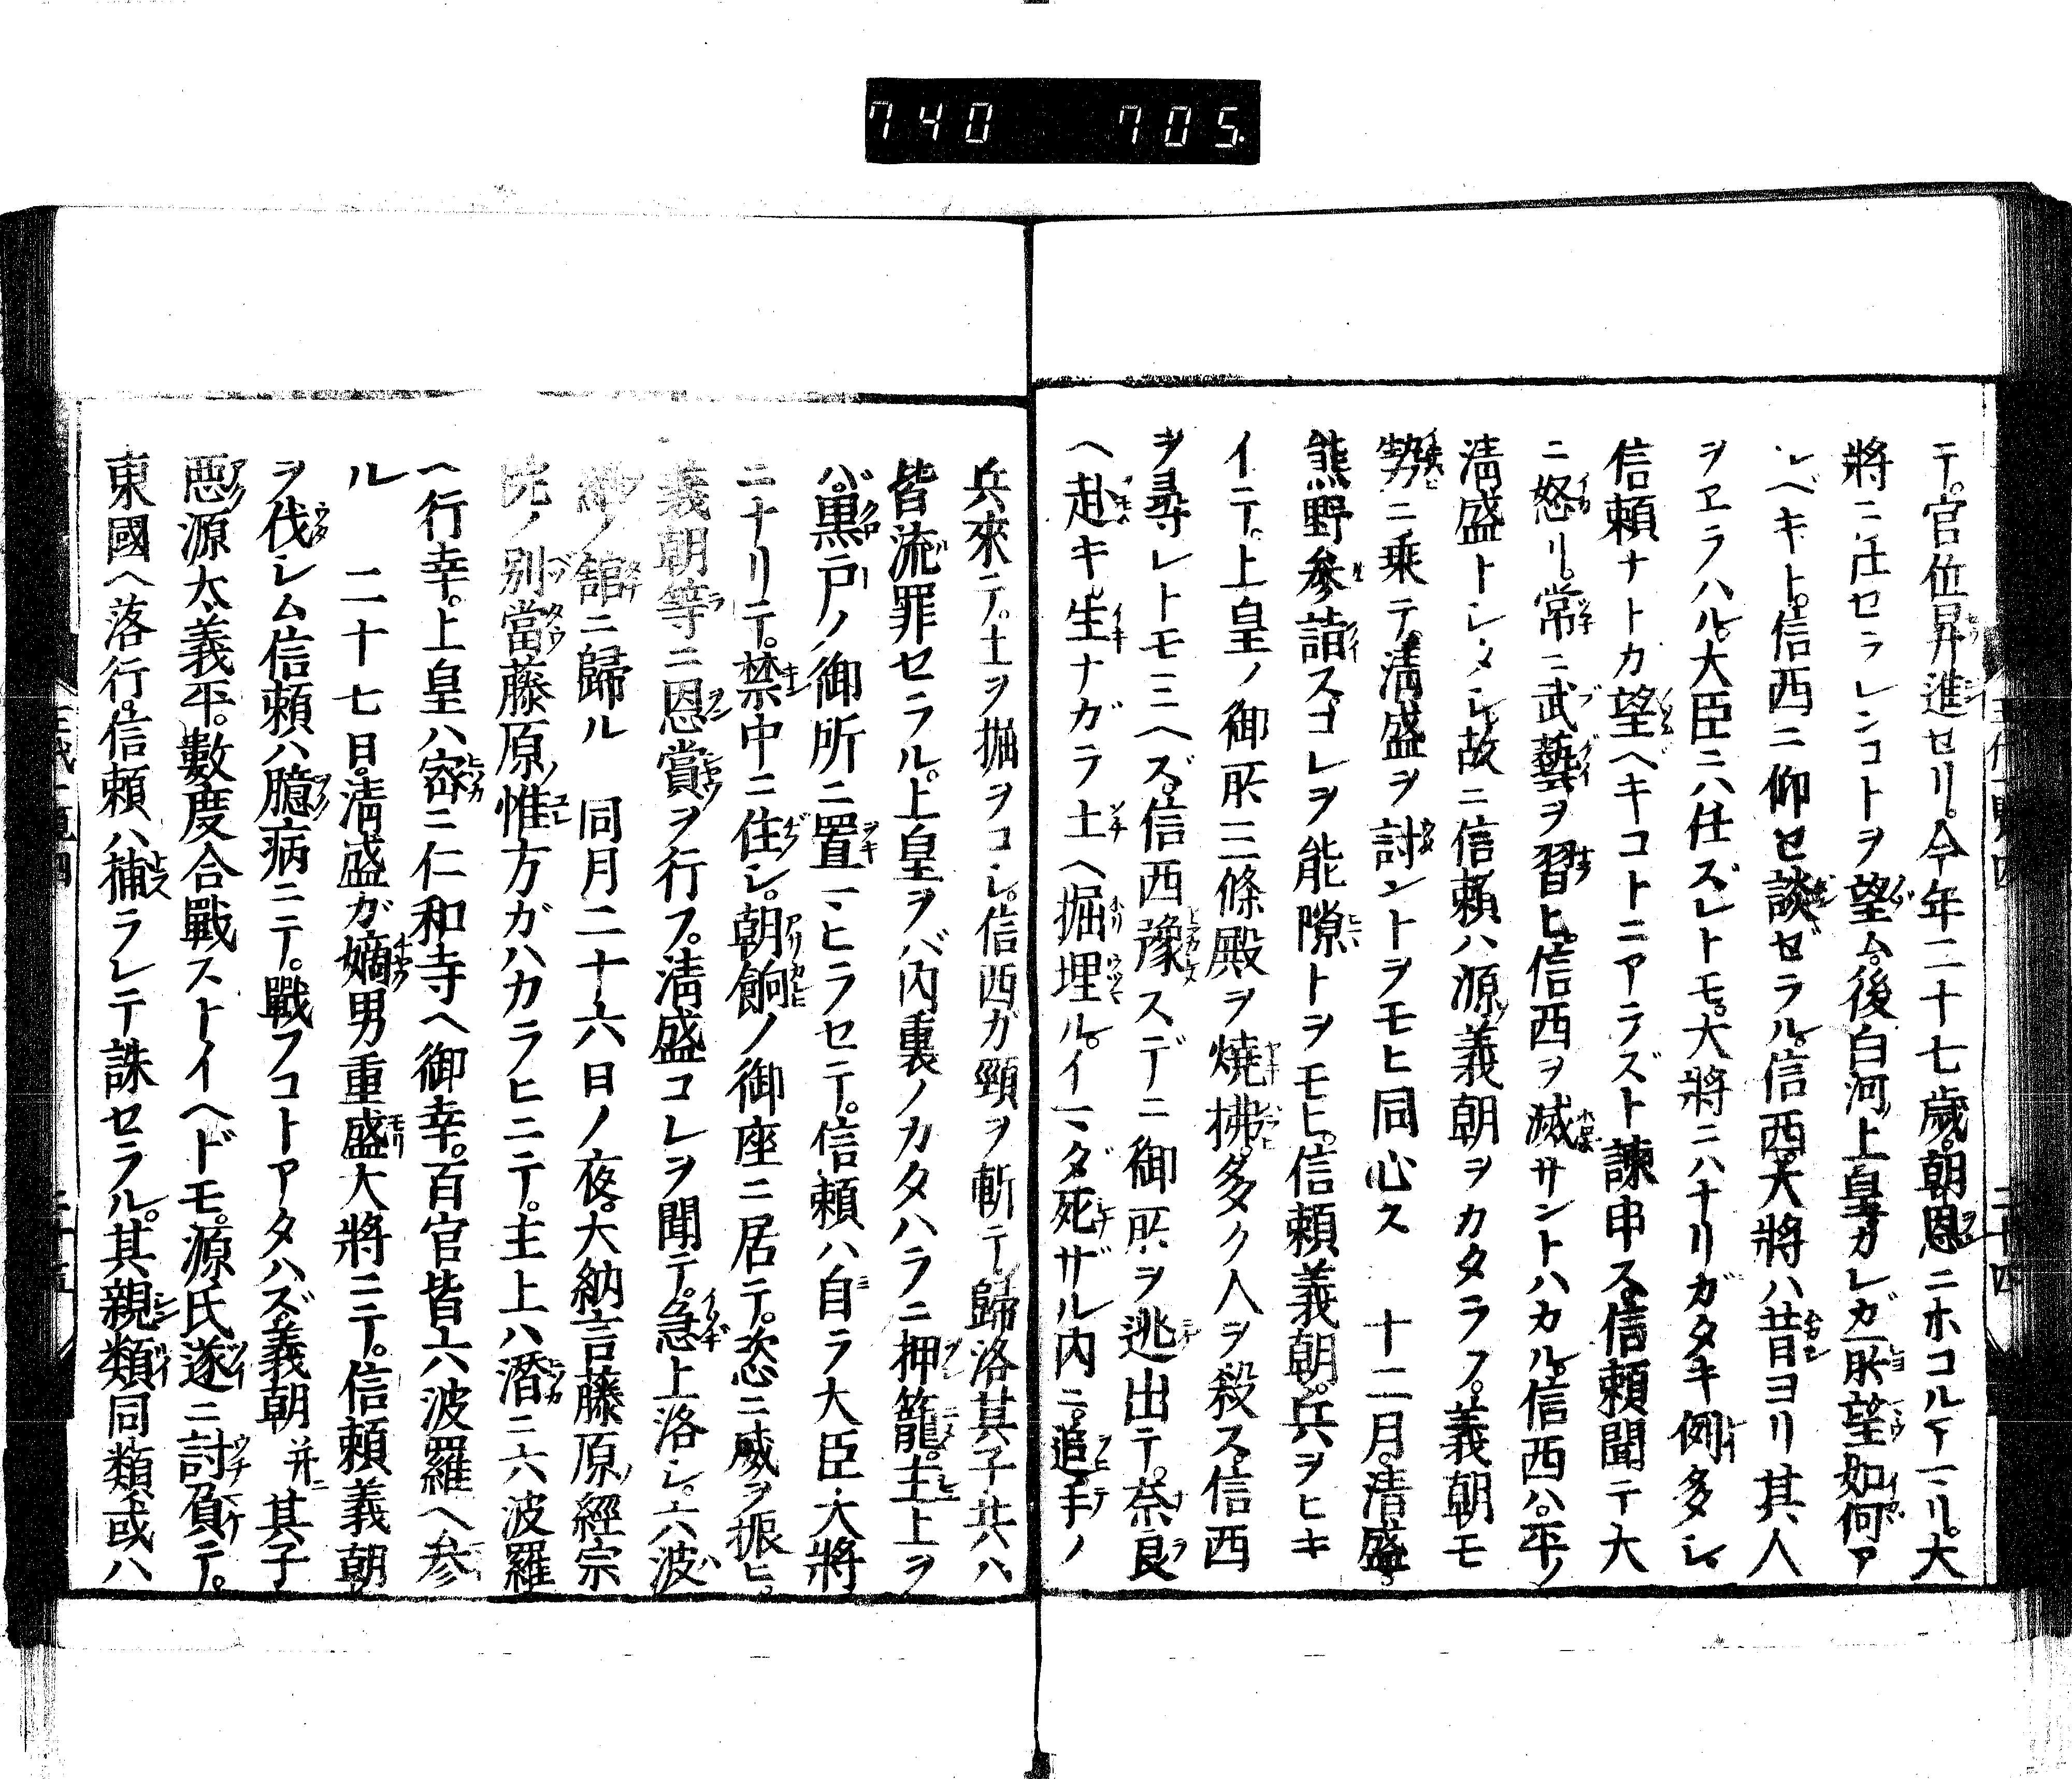 740 705
テ。官位昇進セリ。今年二十七歳。朝恩ニホコルアマリ。大
將ニ任セラレンコトヲ望ム。後白河ノ上皇カレガ所望如何ア
ルベキト。信西ニ仰セ談ゼラル。信西。大將ハ昔ヨリ其人
ヲヱラハル。大臣ニハ任ズレトモ。大將ニハナリガタキ例多シ。
信頼ナトカ望ヘキコトニアラズト諫申ス。信頼聞テ大
ニ怒リ。常ニ武藝ヲ習ヒ。信西ヲ滅サントハカル。信西ハ。平ノ
清盛トシタシ。故ニ信頼ハ源ノ義朝ヲカタラフ。義朝モ
勢ニ乗テ清盛ヲ討ントヲモヒ同心ス 十二月。清盛。
熊野參詣ス。コレヲ能隙トヲモヒ。信頼義朝。兵ヲヒキ
イテ。上皇ノ御所三條殿ヲ燒拂。多ク人ヲ殺ス。信西
ヲ尋レトモミヘズ。信西豫スデニ御所ヲ逃出テ。奈良
ヘ赴キ。生ナガラ土ヘ掘埋ル。イマダ死ザル内ニ。追手ノ
兵來テ。土ヲ掘ヲコシ。信西ガ頸ヲ斬テ歸洛其子共ハ
皆流罪セラル。上皇ヲバ内裏ノカタハラニ押籠。主上ヲ
バ。黒戸ノ御所ニ置マヒラセテ。信頼ハ自ラ大臣大將
ニナリテ。禁中ニ住シ。朝餉ノ御座ニ居テ。恣ニ威ヲ振ヒ。
義朝等ニ恩賞ヲ行フ。清盛コレヲ聞テ。急上洛シ。六波
羅ノ舘ニ歸ル 同月二十六日ノ夜。大納言藤原ノ經宗
院ノ別當藤原ノ惟方ガハカラヒニテ。主上ハ潛ニ六波羅
ヘ行幸。上皇ハ密ニ仁和寺ヘ御幸。百官皆六波羅ヘ参
ル 二十七日。清盛ガ嫡男重盛大將ニテ。信頼義朝
ヲ伐シム信頼ハ臆病ニテ。戰フコトアタハズ。義朝并ニ其子
惡源太義平。數度合戰ストイヘドモ。源氏遂ニ討負テ。
東國ヘ落行。信頼ハ捕ラレテ誅セラル。其親類同類或ハ